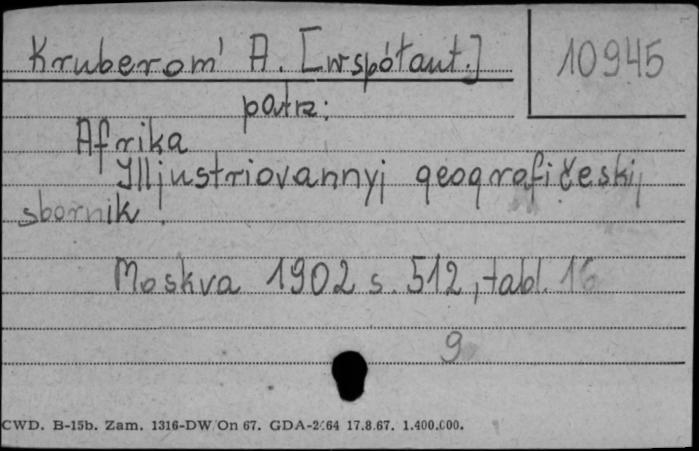 Kruberom' A. [współaut.]
10945
patrz:
Afrika
Illjustriovannyj geografičeskij
sbornik.
Moskva 1902 s. 512, tabl. 16
9
CWD. B-15b. Zam. 1316-DW/On 67. GDA-2/64 17.8.67. 1.400.000.